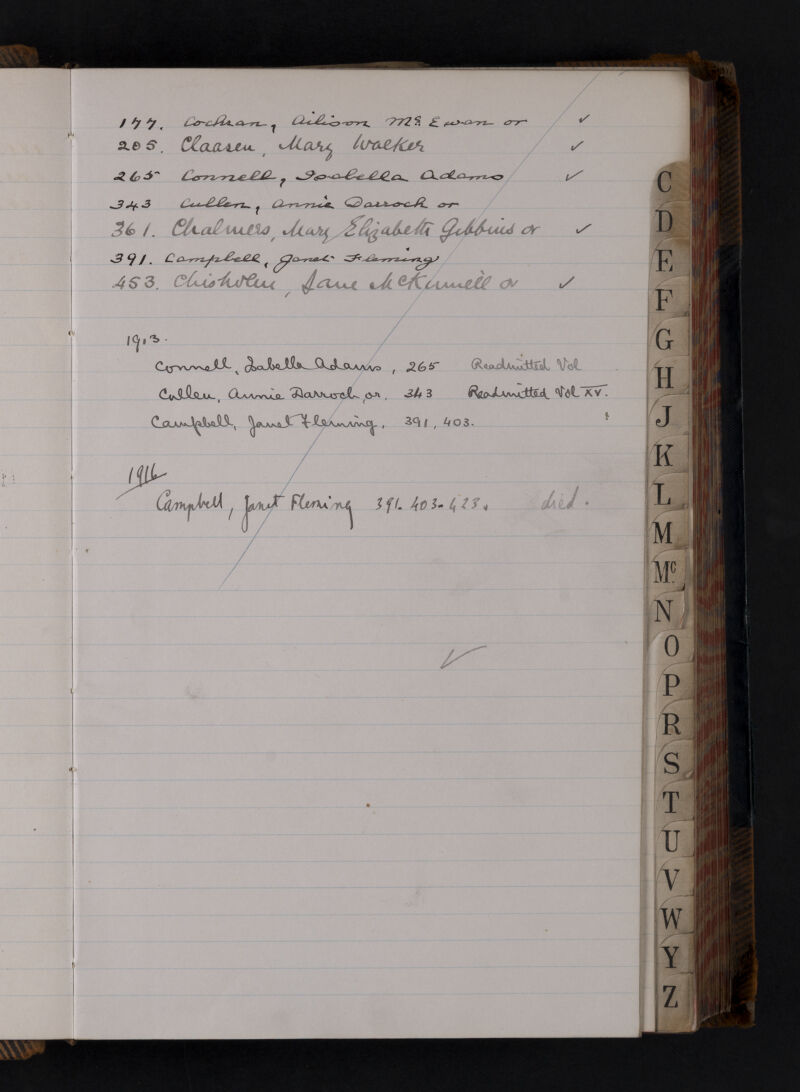 177. Cochran, Ailison McEwan or ✓
205. Claasen, Mary Walker ✓
265 Connell, Isabella Adams ✓
343 Cullen, Annie Darroch or
361. Chalmers, Mary Elizabeth Gibbins or ✓
391. Campbell, Janet Fleming
453. Chisholm, Jane McKinnell or ✓
1913.
Connell, Isabella Adams, 265 Readmitted Vol
Cullen, Annie Darroch, or. 343 Readmitted Vol XV.
Campbell, Janet Fleming, 391, 403.
1916
Campbell, Janet Fleming 391. 403. 423. died.
✓
C
D
E
F
G
H
J
K
L
M
Mc
N
O
P
R
S
T
U
V
W
Y
Z